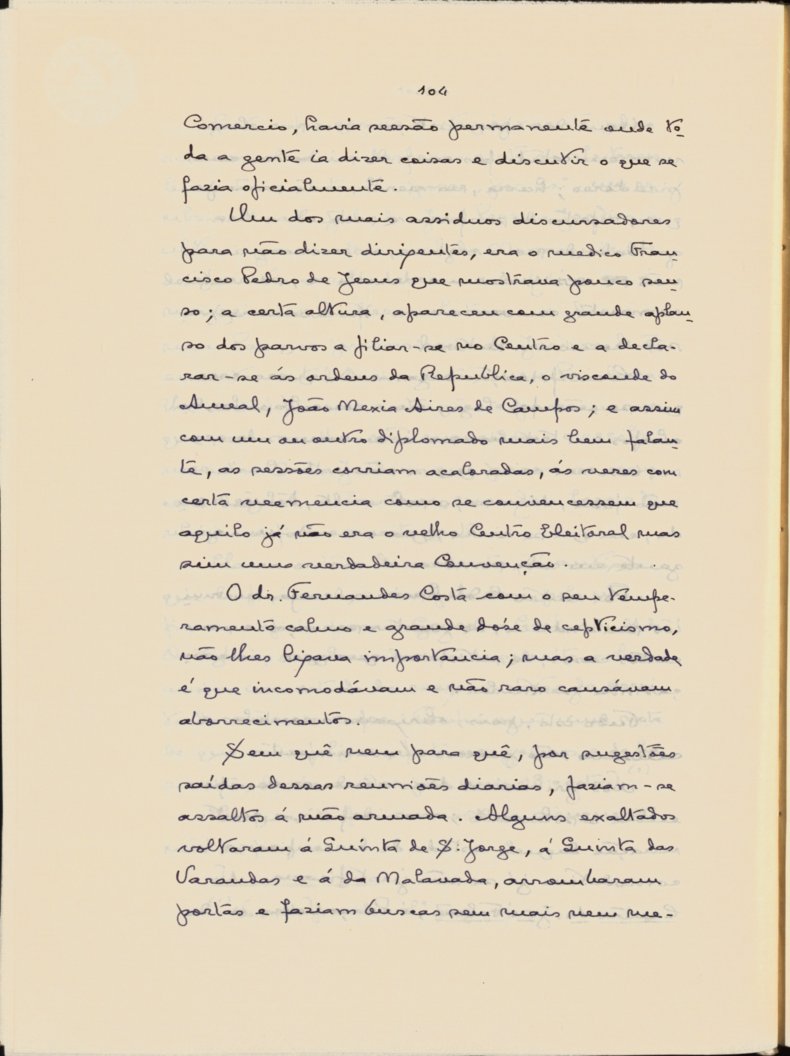 104
Comercio, havia seesão permanente onde to-
da a gente ia dizer coisas e discutir o que se
fazia oficialmente.
Um dos mais assiduos discursadores
para não dizer dirigentes, era o medico Fran-
cisco Pedro de Jesus que mostrava pouco sen-
so; a certa altura, apareceu com grande aplau-
so dos parvos a filiar-se no Centro e a decla-
rar-se ás ordens da Republica, o visconde do
Ameal, João Mexia Aires de Campos; e assim
com um ou outro diplomado mais bem falan-
te, as sessões corriam acaloradas, ás vezes com
certa veemencia como se convencessem que
aquilo já não era o velho Centro Eleitoral mas
sim uma verdadeira Convenção.
O dr. Fernandes Costa com o seu tempe-
ramento calmo e grande dóse de cepticismo,
não lhes ligava importancia; mas a verdade
é que incomodávam e não raro causávam
aborrecimentos.
Sem quê nem para quê, por sugestões
saídas dessas reuniões diarias, faziam-se
assaltos á mão armada. Alguns exaltados
voltaram á Quinta de S. Jorge, á Quinta das
Varandas e á da Malavada, arrombaram
portas e faziam buscas sem mais nem me-